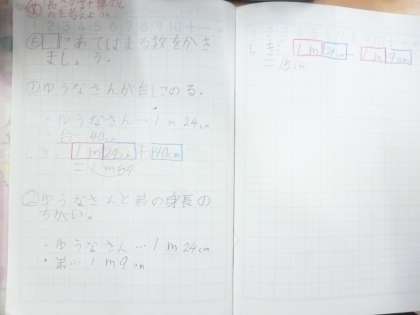 ② □にあてはまる数をかき
ましょう。
①ゆうなさんが台にのる。
・ゆうなさん…1m24cm
台…40cm
1m24cm+40cm
=1m64
②ゆうなさんと弟の身長の
ちがい。
・ゆうなさん…1m24cm
・弟…1m9cm
1m24cm-1m9cm
=15cm